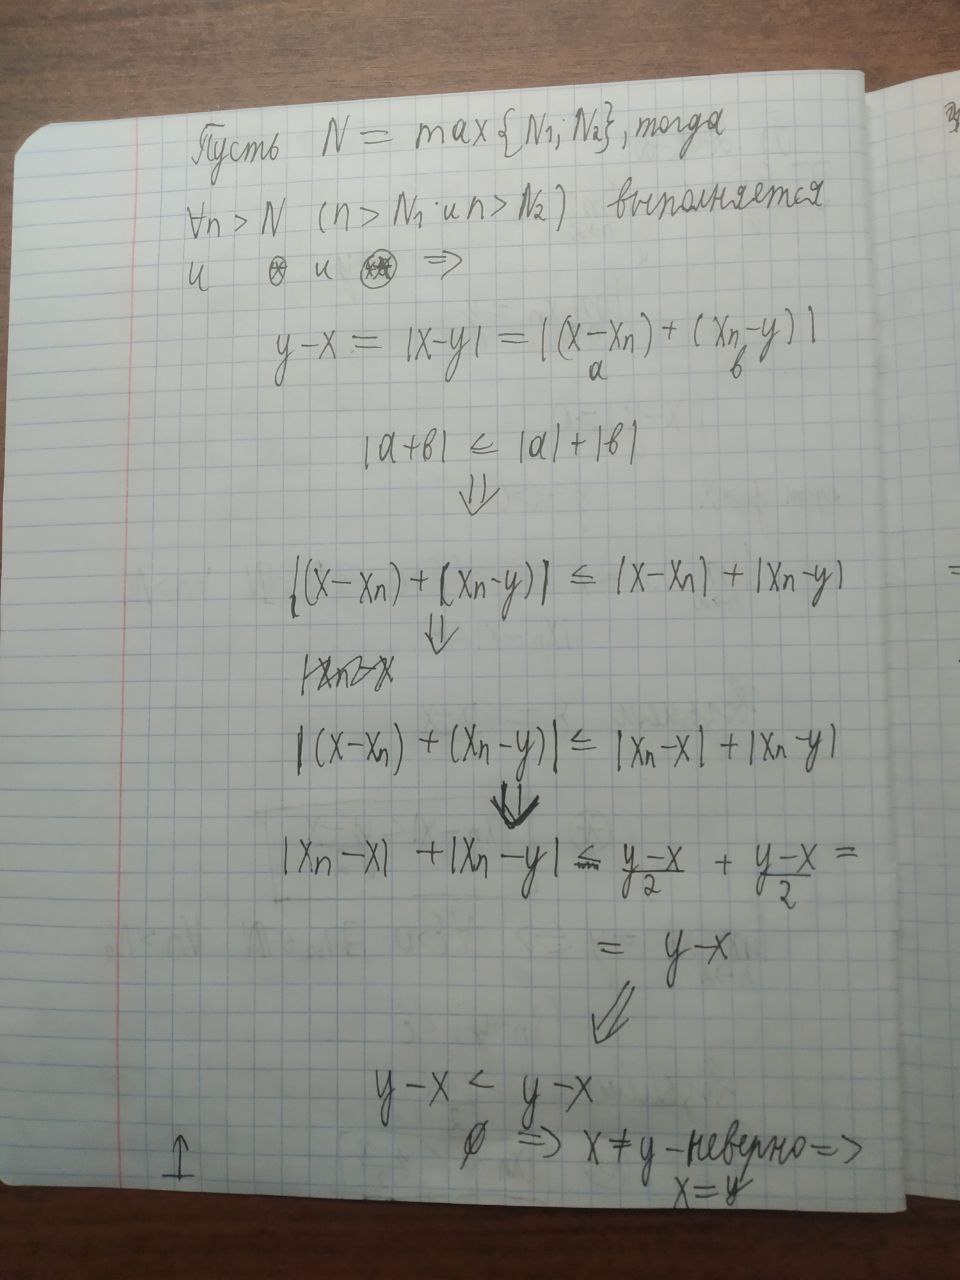 Пусть N = max{N₁; N₂}, тогда
∀n > N (n > N₁ и n > N₂) выполняется
и ⊛ и (**) ⇒
y−x = |x−y| = |(x−xₙ) + (xₙ−y)|
a в
|a+в| ≤ |a|+|в|
⇓
|(x−xₙ) + (xₙ−y)| ≤ |x−xₙ| + |xₙ−y|
⇓
|(x−xₙ) + (xₙ−y)| ≤ |xₙ−x| + |xₙ−y|
⇓
|xₙ−x| + |xₙ−y| ≤ y−x/2 + y−x/2 =
= y−x
⇓
y−x < y−x
∅ ⇒ x ≠ y − неверно ⇒
x = y